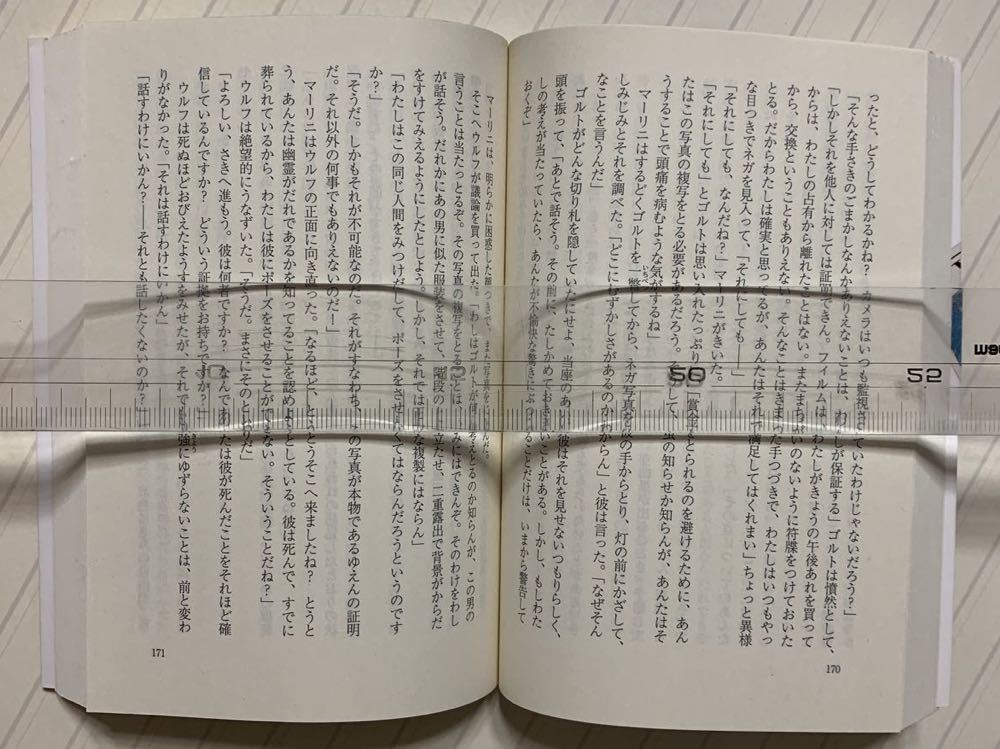 ったと、どうしてわかるかね? カメラはいつも監視さ ていたわけじゃないだろう?」
「そんな手さきのごまかしなんかありえないことは、わ しが保証する」ゴルトは憤然として、
「しかしそれを他人に対しては証 できん。フィルムは、わたしがきょうの午後あれを買って
からは、わたしの占有から離れたことはない。またまち いのないように符牒をつけておいた
から、交換ということもありえない。そんなことはきまった手つづきで、わたしはいつもやっ
とる。だからわたしは確実と思ってるが、あんたはそれで満足してはくれまい」ちょっと異様
な目つきでネガを見入って、「それにしても――」
「それにしても、なんだね?」マーリニがきいた。
「それにしても」とゴルトは思い入れたっぷり して、「賞金を とられるのを避けるために、あん
たはこの写真の複写をとる必要があるだろう。 の知らせか知らんが、あんたはそ
うすることで頭痛を病むような気がするね」
マーリニはするどくゴルトを一瞥してから、ネガ写真を の手からとり、灯の前にかざして、
しみじみとそれを調べた。「どこにむずかしさがあるのかわからん」と彼は言った。「なぜそん
なことを言うんだ」
ゴルトがどんな切り札を隠していたにせよ、当座のあい 彼はそれを見せないつもりらしく、
頭を振って、「あとで話そう。その前に、たしかめておきたいことがある。しかし、もしわた
しの考えが当たっていたら、あんたが不愉快な驚きにぶつ ることだけは、いまから警告して
おくぞ」
170
マーリニは、明らかに困惑した顔つきで、また写真を
そこへウルフが議論を買って出た。「わしはゴルトが何 考えとるのか知らんが、この男の
言うことは当たっとるぞ。その写真の複写をとる とは、 みにはできんぞ。そのわけをわし
が話そう。だれかにあの男に似た服装をさせて、階段の 立たせ、二重露出で背景がからだ
をすけてみえるようにしたとしよう。しかし、それでは な複製にはならん」
「わたしはこの同じ人間をみつけだして、ポーズをさせ くてはならんだろうというのです
か?」
「そうだ。しかもそれが不可能なのだ。それがすなわち、 の写真が本物であるゆえんの証明
だ。それ以外の何事でもありえないのだ!」
マーリニはウルフの正面に向き直った。「なるほど、とうとうそこへ来ましたね? とうと
う、あんたは幽霊がだれであるかを知ってることを認めようとしている。彼は死んで、すでに
葬られているから、わたしは彼にポーズをさせることができない。そういうことだね?」
ウルフは絶望的にうなずいた。「そうだ。まさにそのとおりだ」
「よろしい、さきへ進もう。彼は何者ですか? なんであ たは彼が死んだことをそれほど確
信しているんですか? どういう証拠をお持ちですか?」
ウルフは死ぬほどおびえたようすをみせたが、それでも 強にゆずらないことは、前と変わ
りがなかった。「それは話すわけにいかん」
「話すわけにいかん?――それとも話したくないのか?」
171
50
52